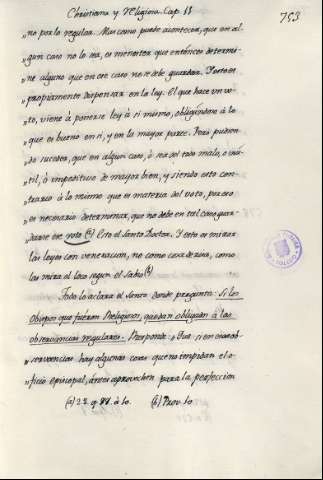 Christiana y Religiosa. Cap. 11
753
"no por lo regular. Mas como puede acontecer, que en al-
"gun caso no lo sea, es menester que entónces determi-
"ne alguno que en ese caso no se debe guardar. Y esto es
"propiamente dispensar en la ley. El que hace un vo-
"to, viene á ponerse ley á si mismo, obligándose á lo
"que es bueno en si, y en la mayor parte. Pero pudien-
"do suceder, que en algun caso, ó sea del todo malo, o inú-
"til, ó impeditivo de mayor bien, y siendo esto con-
"trario á lo mismo que es materia del voto, por eso
"es necesario determinar, que no debe en tal caso guar-
"darse ese voto (a). Esto el Santo Doctor. Y esto es mirar
las leyes con veneracion, no como cosa de risa, como
las mira el loco segun el Sabio (b)
Todo lo aclara el Santo donde pregunta: Si los
Obispos que fueron Religiosos, quedan obligados á las
observancias regulares. Responde: "Que si en esas ob-
"servancias hay algunas cosas que no impidan el o-
"ficio episcopal, ántes aprovechen para la perfeccion
(a) 22. q. 88. á 10. (b) Prov. 10